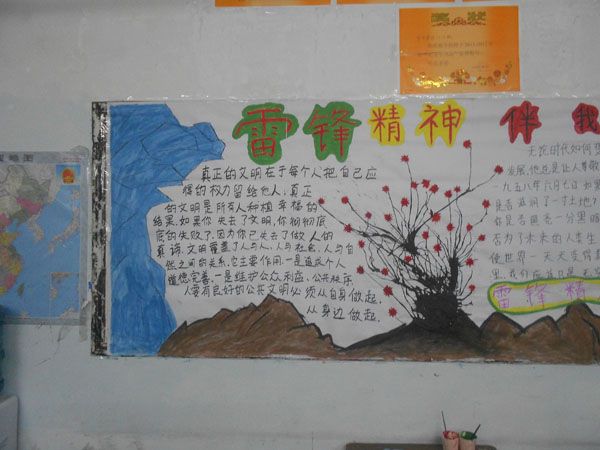 奖状
雷锋精神 伴我
真正的文明在于每个人把自己应
样的权力留给他人,真正
的文明是所有人种植幸福的
结果,如果你失去了文明,你彻彻底
底的失败了,因为你已失去了做人的
真谛.文明覆盖了人与人.人与社会.人与自
然之间的关系,它主要作用,一是追求个人
道德完善,一是维护公众利益、公共秩序.
人要有良好的公共文明必须从自身做起,
从身边做起.
无论时代如何
发展,他还是让人尊敬
一九五八年六月七日如果
是否滋润了一寸土地?
你是否照亮一分黑暗
否为了未来的人类生
使世界一天天变
雷锋精